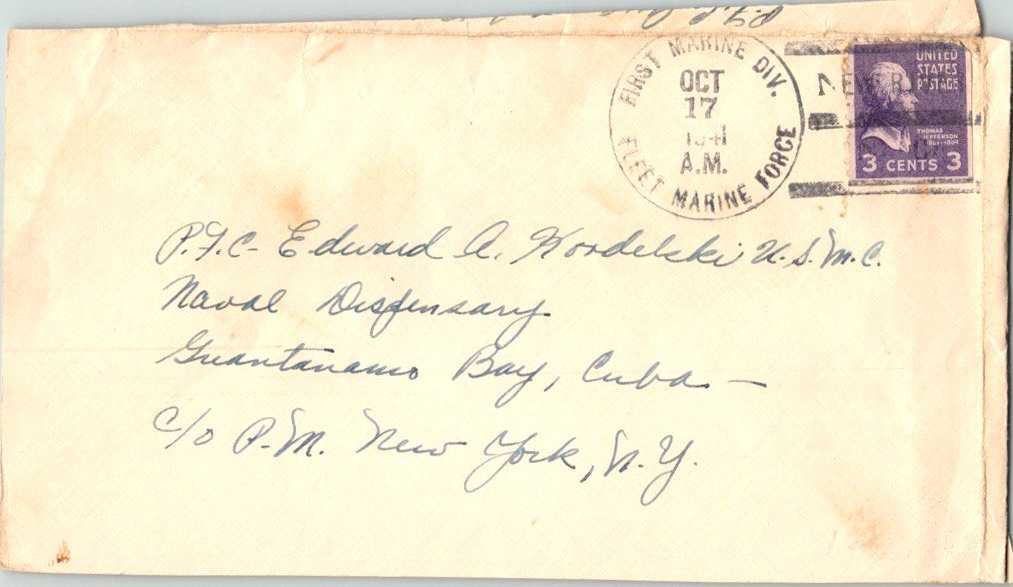 FIRST MARINE DIV.
OCT
17
1941
A.M.
FLEET MARINE FORCE
NEW R
UNITED
STATES
POSTAGE
THOMAS
JEFFERSON
1801-1809
3 CENTS 3
P.F.C- Edward A. Kordelski U.S.M.C.
Naval Dispensary
Guantanamo Bay, Cuba -
c/o P.M. New York, N.Y.